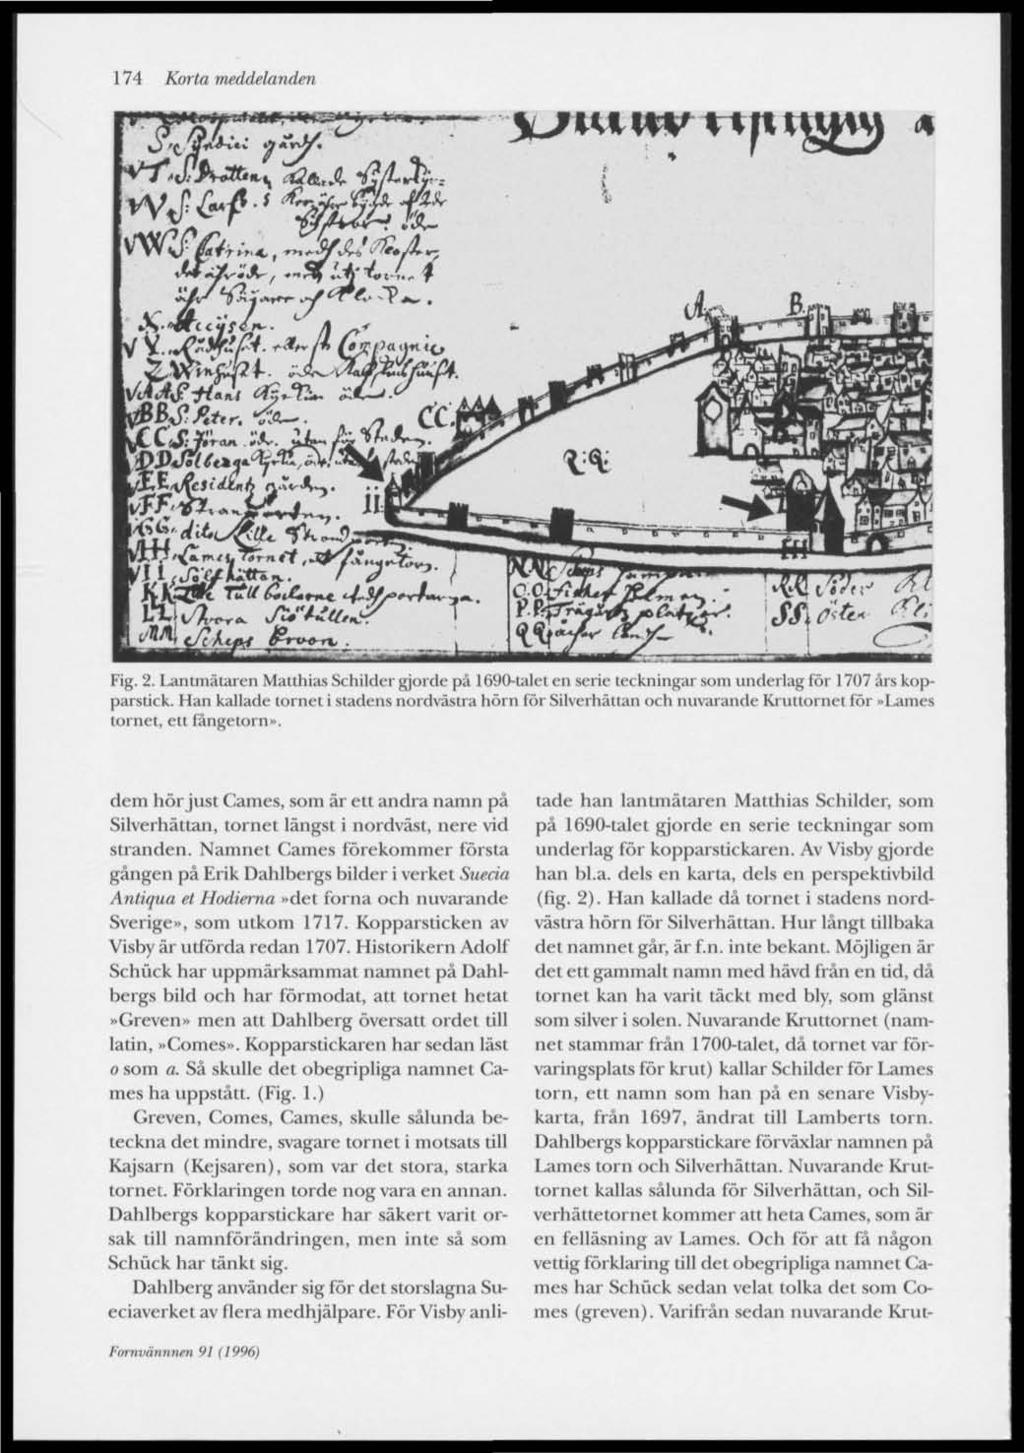 174 Korta meddelanden
S. Syndici gårdh.
X. Accijsen.
BB. S: Peter. öde.
EE. Residentz gården.
LL. Stora Siötullen.
MM. Scheps Broon.
A.
B.
CC.
R:Q:
ii
HH
Fig. 2. Lantmätaren Matthias Schilder gjorde på 1690-talet en serie teckningar som underlag för 1707 års kop-
parstick. Han kallade tornet i stadens nordvästra hörn för Silverhättan och nuvarande Kruttornet för »Lames
tornet, ett fångetorn».
dem hör just Cames, som är ett andra namn på
Silverhättan, tornet längst i nordväst, nere vid
stranden. Namnet Cames förekommer första
gången på Erik Dahlbergs bilder i verket Suecia
Antiqua et Hodierna »det forna och nuvarande
Sverige», som utkom 1717. Kopparsticken av
Visby är utförda redan 1707. Historikern Adolf
Schück har uppmärksammat namnet på Dahl-
bergs bild och har förmodat, att tornet hetat
»Greven» men att Dahlberg översatt ordet till
latin, »Comes». Kopparstickaren har sedan läst
o som a. Så skulle det obegripliga namnet Ca-
mes ha uppstått. (Fig. 1.)
Greven, Comes, Cames, skulle sålunda be-
teckna det mindre, svagare tornet i motsats till
Kajsarn (Kejsaren), som var det stora, starka
tornet. Förklaringen torde nog vara en annan.
Dahlbergs kopparstickare har säkert varit or-
sak till namnförändringen, men inte så som
Schück har tänkt sig.
Dahlberg använder sig för det storslagna Su-
eciaverket av flera medhjälpare. För Visby anli-
tade han lantmätaren Matthias Schilder, som
på 1690-talet gjorde en serie teckningar som
underlag för kopparstickaren. Av Visby gjorde
han bl.a. dels en karta, dels en perspektivbild
(fig. 2). Han kallade då tornet i stadens nord-
västra hörn för Silverhättan. Hur långt tillbaka
det namnet går, är f.n. inte bekant. Möjligen är
det ett gammalt namn med hävd från en tid, då
tornet kan ha varit täckt med bly, som glänst
som silver i solen. Nuvarande Kruttornet (nam-
net stammar från 1700-talet, då tornet var för-
varingsplats för krut) kallar Schilder för Lames
torn, ett namn som han på en senare Visby-
karta, från 1697, ändrat till Lamberts torn.
Dahlbergs kopparstickare förväxlar namnen på
Lames torn och Silverhättan. Nuvarande Krut-
tornet kallas sålunda för Silverhättan, och Sil-
verhättetornet kommer att heta Cames, som är
en felläsning av Lames. Och för att få någon
vettig förklaring till det obegripliga namnet Ca-
mes har Schück sedan velat tolka det som Co-
mes (greven). Varifrån sedan nuvarande Krut-
Fornvännnen 91 (1996)